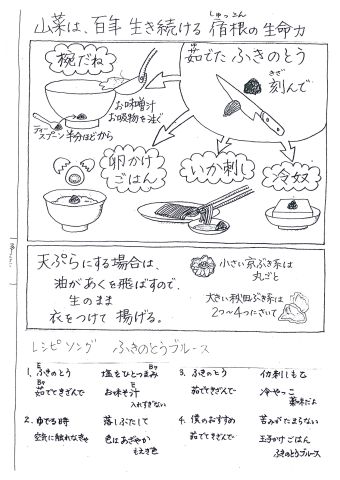 山菜は、百年 生き続ける 宿根の生命力
しゅっこん
椀だね
茹でた ふきのとう
きざ
刻んで
お味噌汁
お吸物を注ぐ
ティースプーン 半分ほどから
卵かけ
ごはん
いか刺し
冷奴
天ぷらにする場合は、
油があくを飛ばすので、
生のまま
衣をつけて 揚げる。
小さい京ぶき系は
丸ごと
大きい秋田ぶき系は
2つ〜4つにさいて
レシピソング ふきのとうブルース
1. ふきのとう 塩をひとつまみ
茹でてきざんで お味そ汁
入れすぎない
2. ゆでる時 落しぶたして
空気に触れなきゃ 色はあざやか
もえぎ色
3. ふきのとう イカ刺しもよ
茹でてきざんで 冷やっこ
薬味だよ
4. 僕のおすすめ 苦みがたまらない
茹でてきざんで 玉子かけごはん
ふきのとうブルース